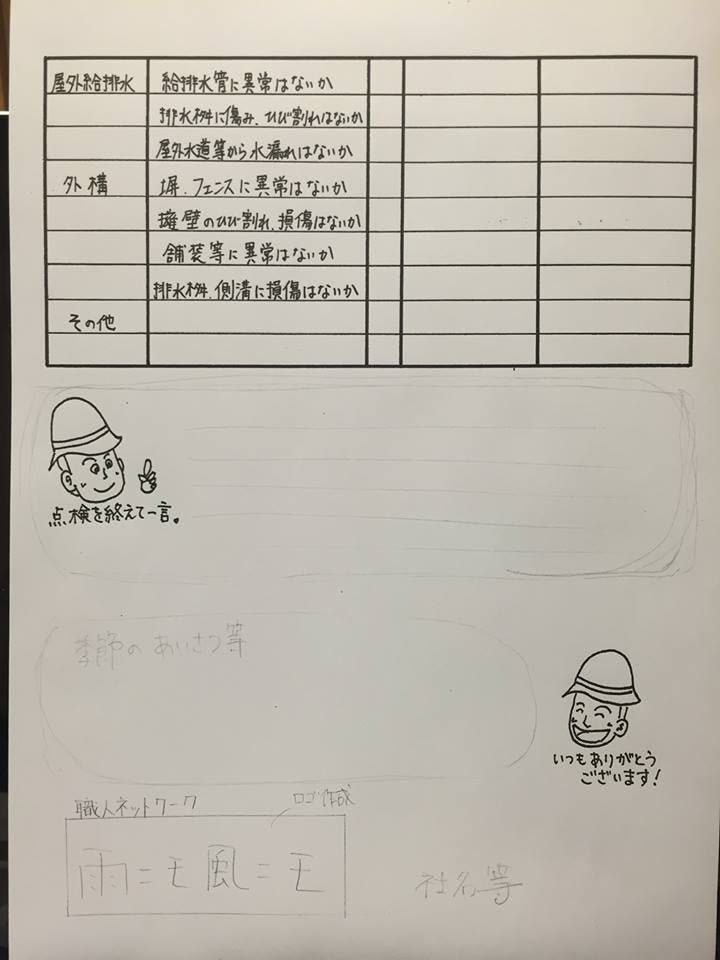 屋外給排水 給排水管に異常はないか
排水桝に傷み、ひび割れはないか
屋外水道等から水漏れはないか
外構 塀、フェンスに異常はないか
擁壁のひび割れ、損傷はないか
舗装等に異常はないか
排水桝、側溝に損傷はないか
その他
点検を終えて一言。
季節のあいさつ等
いつもありがとう
ございます!
職人ネットワーク ロゴ作成
雨ニモ風ニモ
社名等